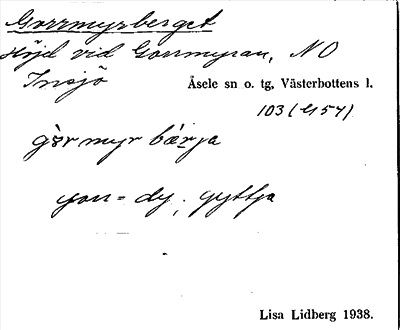 Gorrmyrberget
Höjd vid Gorrmyran, NO
Insjö
Åsele sn o. tg, Västerbottens l.
103 (U54)
gòrmyrbǽrja
gorr = dy, gyttja
Lisa Lidberg 1938.